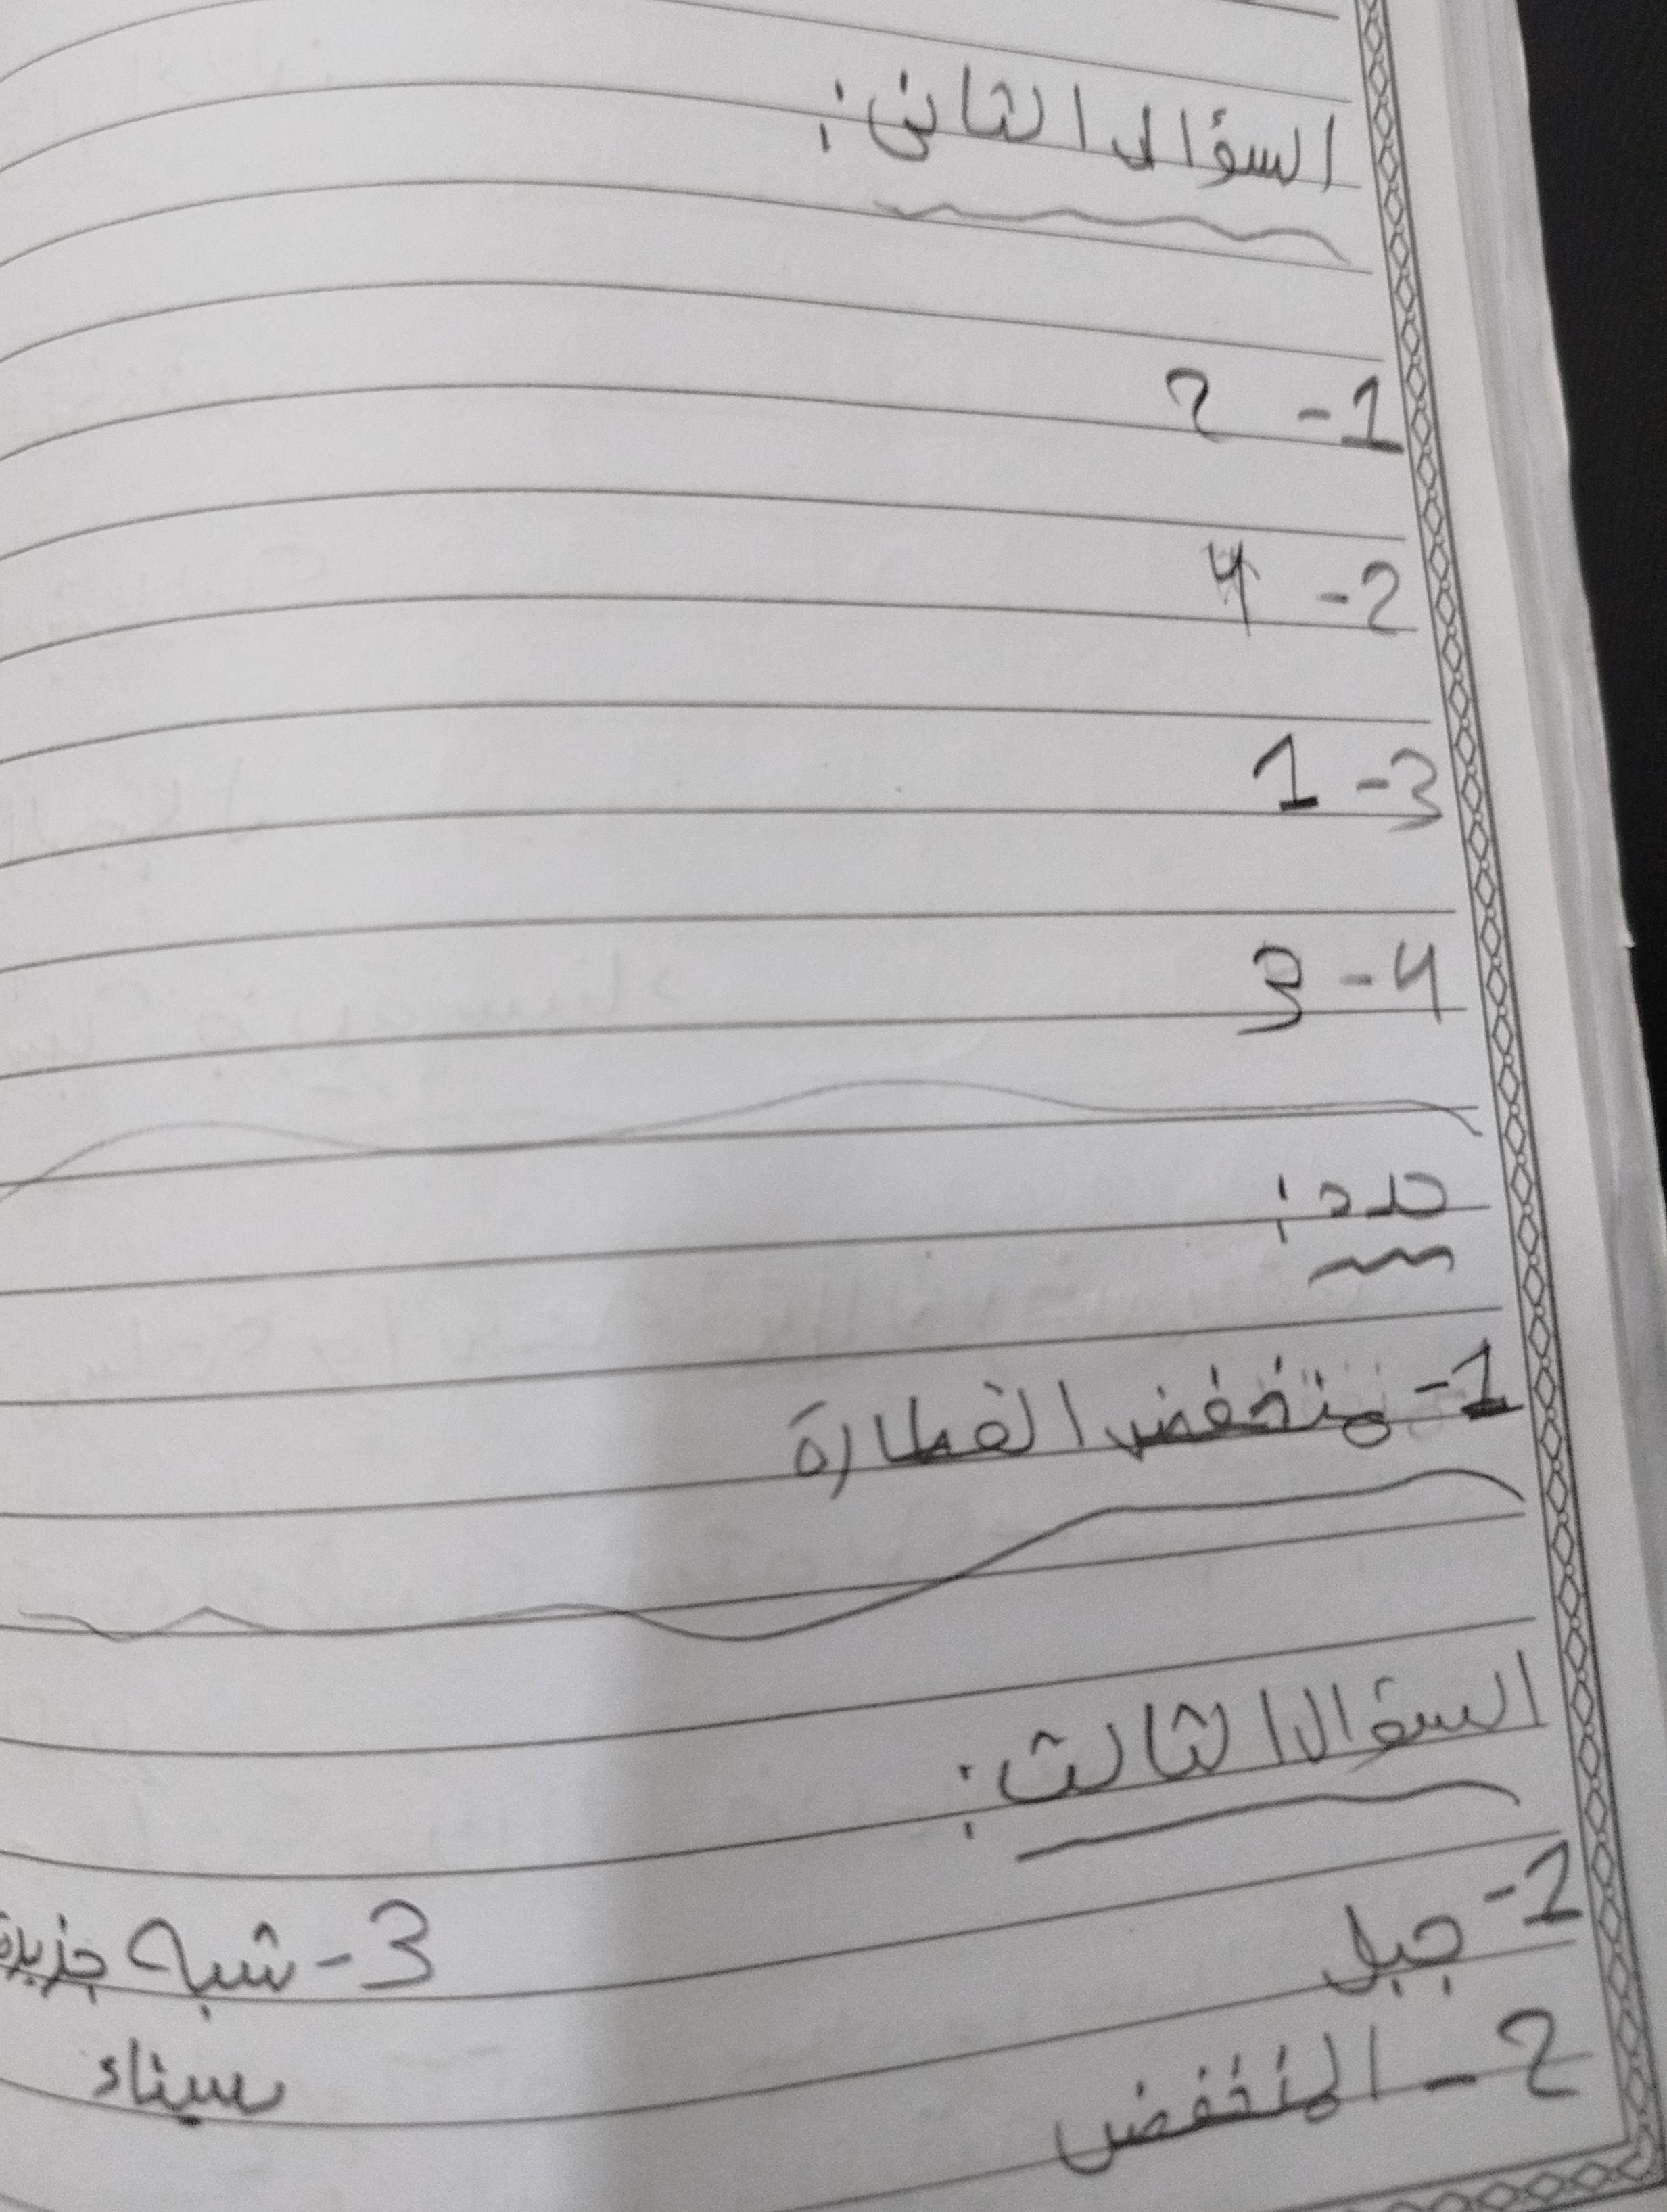 السؤال الثاني:
1- 2
2- 4
3- 1
4- 3
حدد:
1- منخفض القطارة
السؤال الثالث:
1- جبل
3- شبه جزيرة
2- المنخفض
سيناء